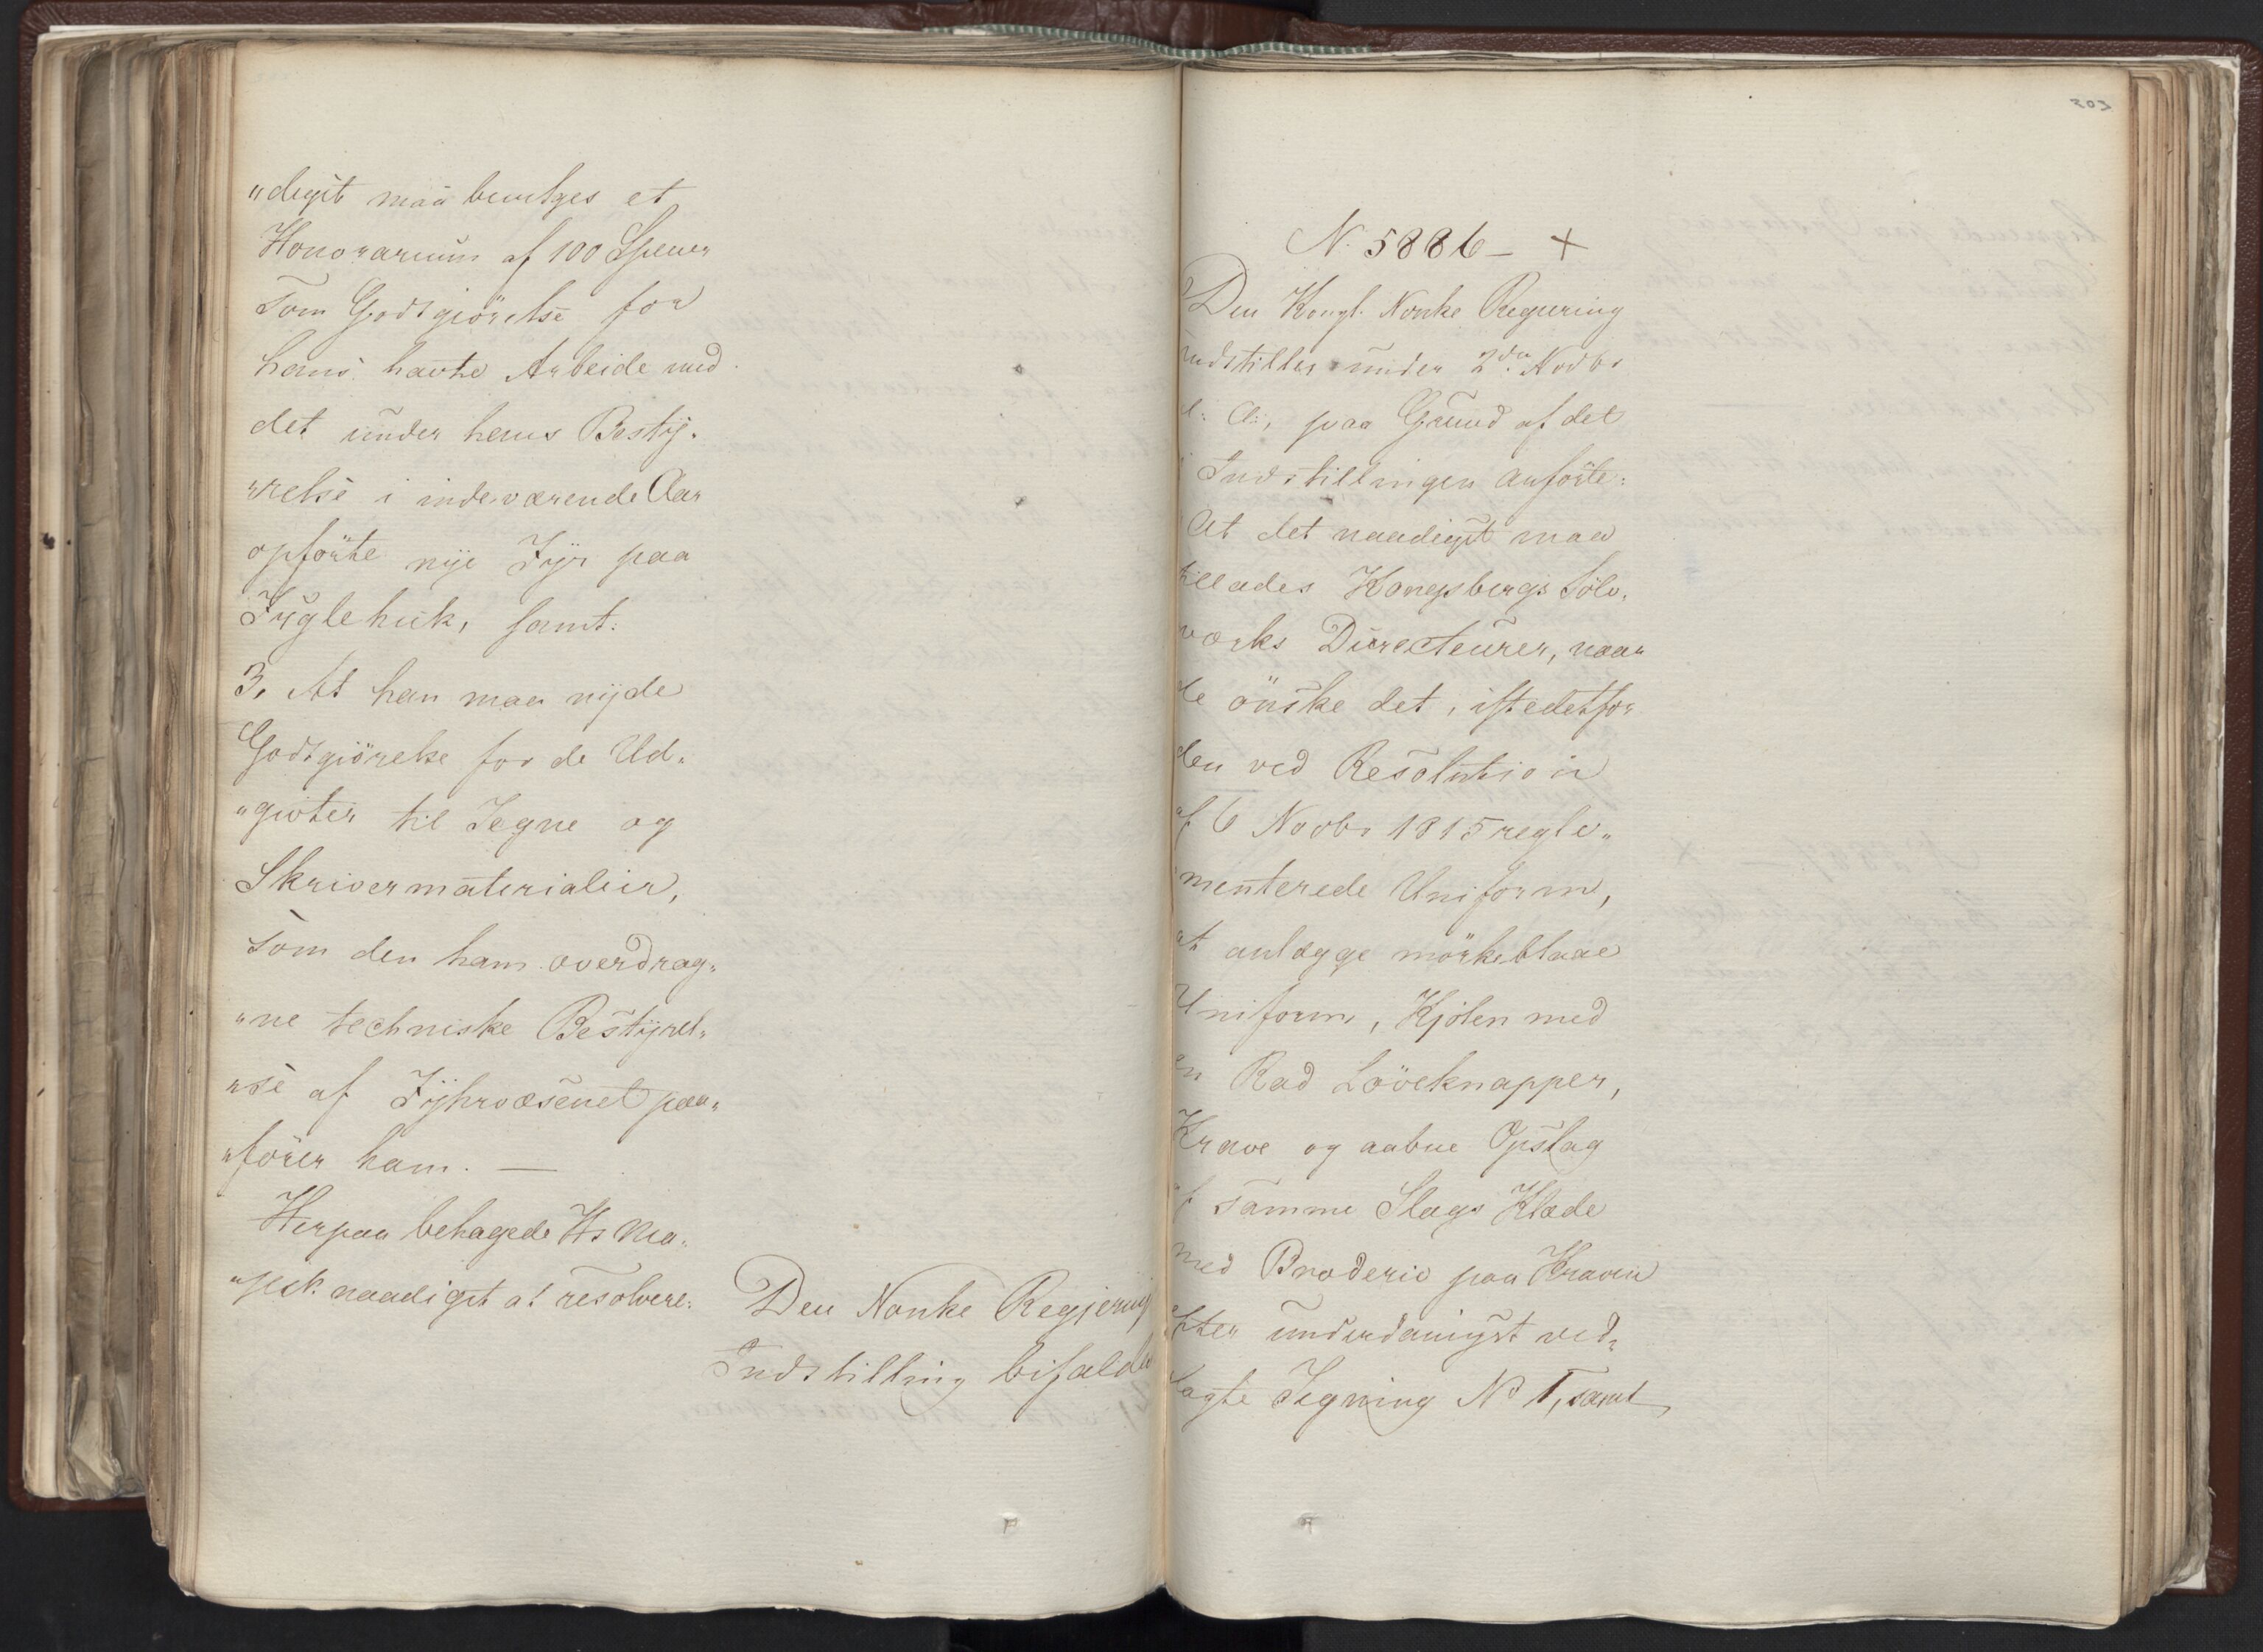 „digst maa bevilges et
Honorarium af 100 Specier
som Godtgiörelse for
hans havte Arbeide med
det under hans Besty„
„relse i indeværende Aar
opförte nye Fyr paa
Fuglehuk, samt:
3, At han maa nyde
Godtgiörelse for de Ud„
„givter til Tegne og
Skrivermaterialier,
som den ham overdrag„
„ne techniske Bestyrel„
„se af Fyhrvæsenet paa„
„förer ham. —
Herpaa behagede Hs Ma„
„jest. naadigst at resolvere:
Den Norske Regjerings
Indstilling bifaldes
203
N. 5886 — +
Den Kongl. Norske Regjering
indstiller under 2den Novbr
d: A:, paa Grund af det
i Indstillingen anförte:
At det naadigst maa
tillades Kongsbergs Sölv„
værks Directeurer, naar
de önske det, istedetfor
den ved Resolution
af 6 Novbr 1815 regle„
menterede Uniform,
at anlægge mörkeblaae
Uniform, Kjolen med
en Rad Löveknapper,
Krave og aabne Opslag
af samme Slags Klæde
med Broderie paa Kraven
efter underdanigst ved„
lagte Tegning No 1, samt